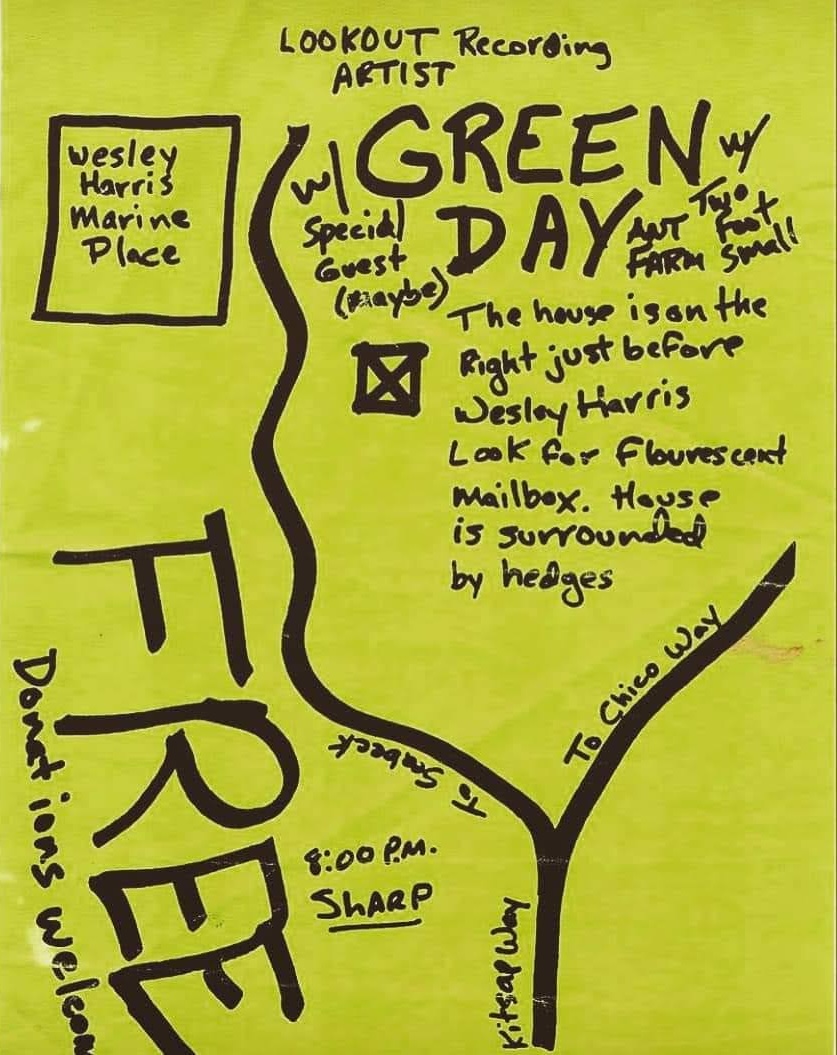 LOOKOUT Recording
ARTIST
w/ GREEN w/
DAY
Special
Guest
(Maybe)
ANT
FARM
Two
Foot
Small
Wesley
Harris
Marine
Place
The house is on the
Right just before
Wesley Harris
Look for Flourescent
Mailbox. House
is surrounded
by hedges
To Chico Way
to Seabeck
Kitsap Way
8:00 P.M.
SHARP
FREE
Donations Welcom